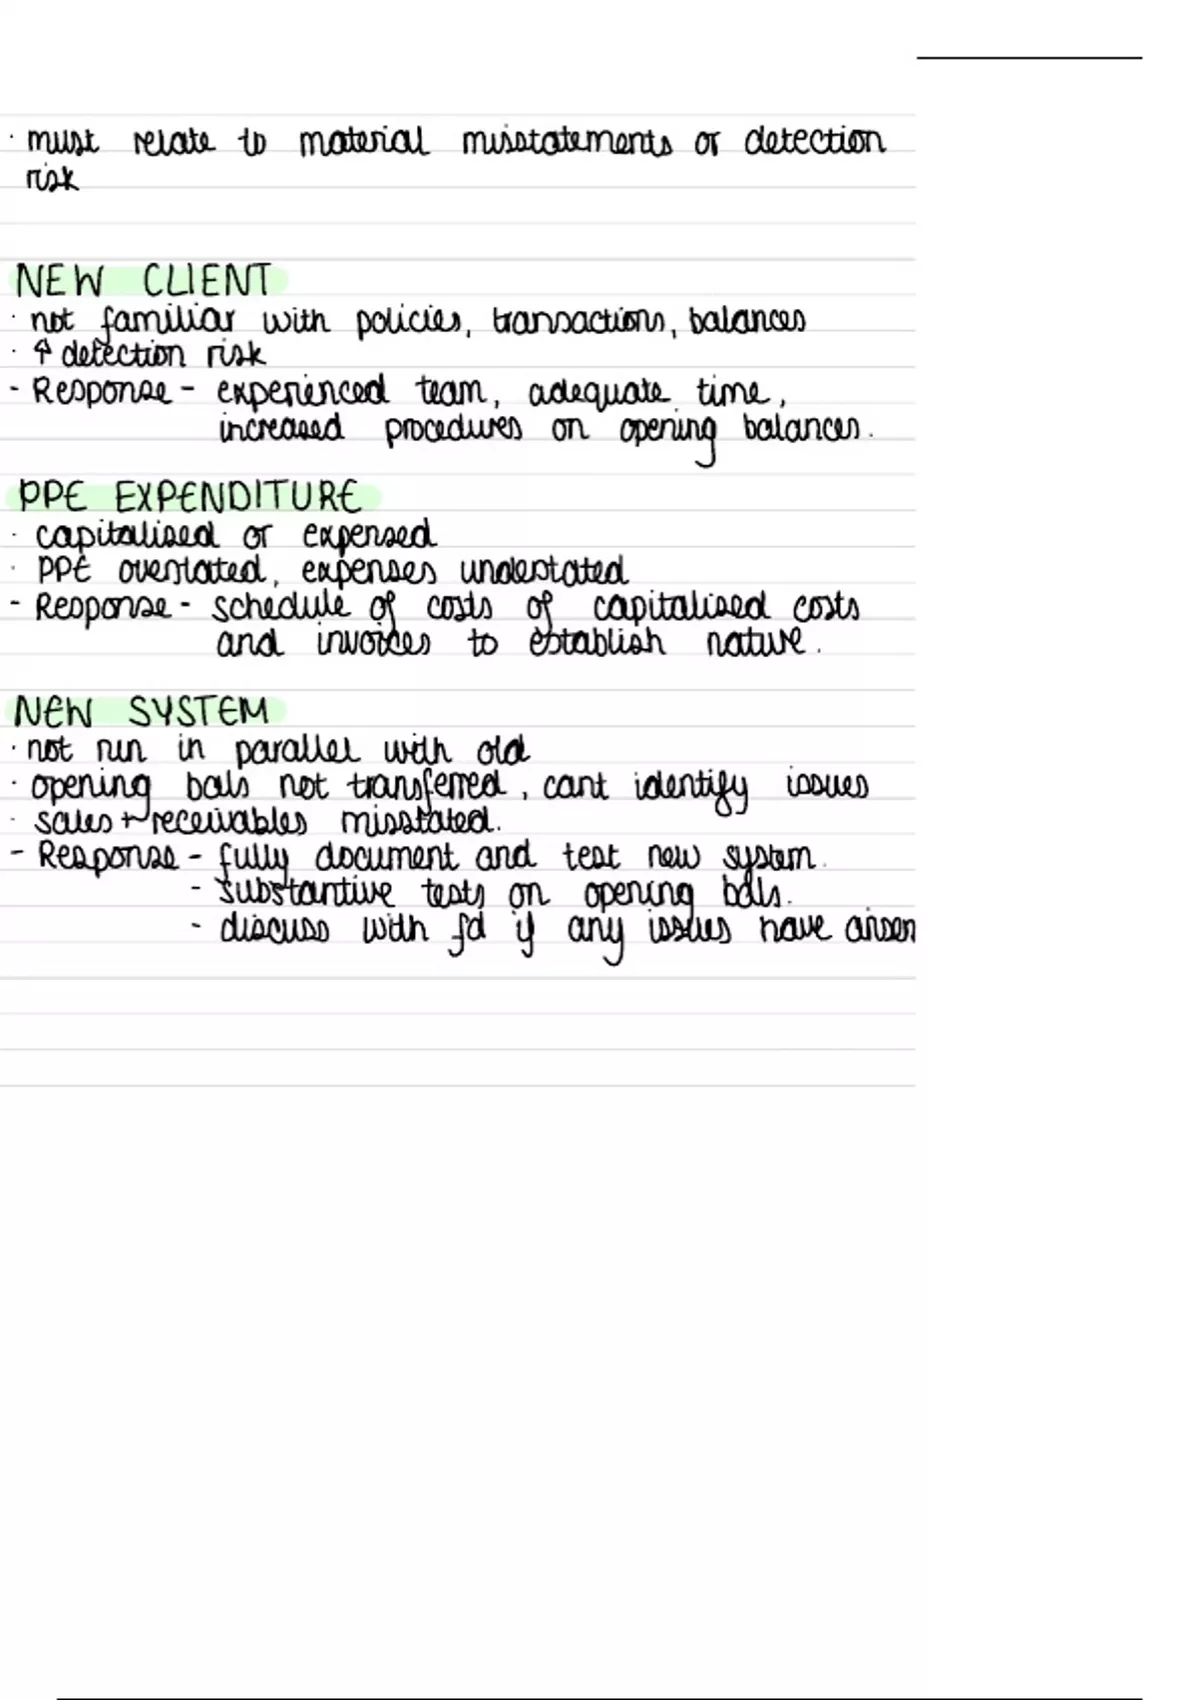 · must relate to material misstatements or detection
risk
NEW CLIENT
· not familiar with policies, transactions, balances
· ↑ detection risk
- Response - experienced team, adequate time,
increased procedures on opening balances.
PPE EXPENDITURE
· capitalised or expensed
· PPE overstated, expenses understated
- Response - schedule of costs of capitalised costs
and invoices to establish nature.
NEW SYSTEM
· not run in parallel with old
· opening bals not transferred, cant identify issues
· sales + receivables misstated.
- Response - fully document and test new system.
- substantive tests on opening bals.
- discuss with fd if any issues have arisen